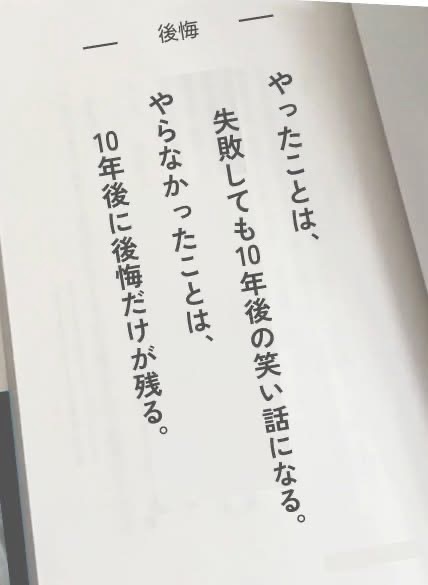 後悔
やったことは、
失敗しても10年後の笑い話になる。
やらなかったことは、
10年後に後悔だけが残る。